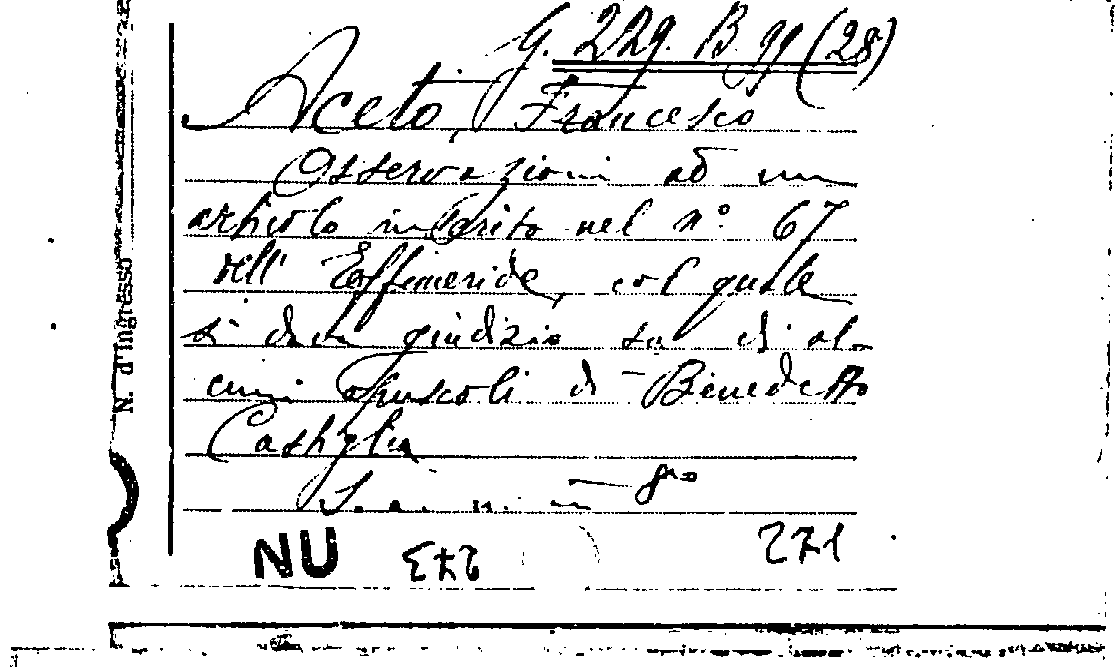 G. 229. B. 99 (28)
Aceto, Francesco
Osservazioni ad un
articolo inserito nel n.º 67
dell' Effimeride, col quale
si dava giudizio su di al-
cuni opuscoli di Benedetto
Castiglia
S. a. n. in 8vo
NU 273 271
N. d'Ingresso